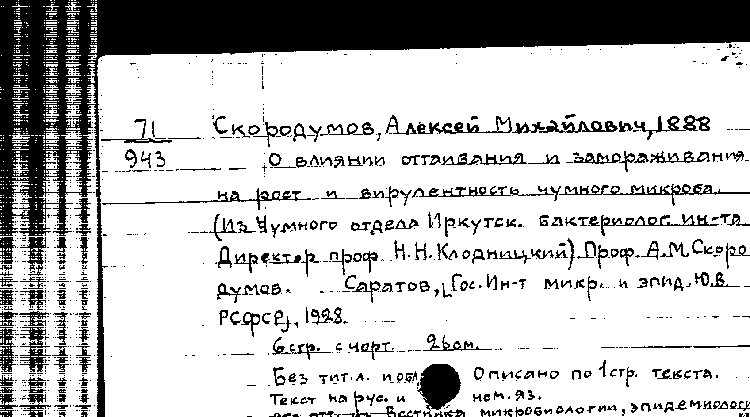 71
943
Скородумов, Алексей Михайлович, 1888
О влиянии оттаивания и замораживания
на рост и вирулентность чумного микроба.
(Из Чумного отдела Иркутск. бактериолог. ин-та
Директор проф. Н.Н. Клодницкий) Проф. А.М. Скоро
думов. Саратов, [Гос. Ин-т микр. и эпид. Ю.В.
РСФСР], 1928.
6 стр. с черт. 26 см.
Без тит.л. и обл. Описано по 1 стр. текста.
Текст на рус. и нем. яз.
Вестника микробиологии, эпидемиологи